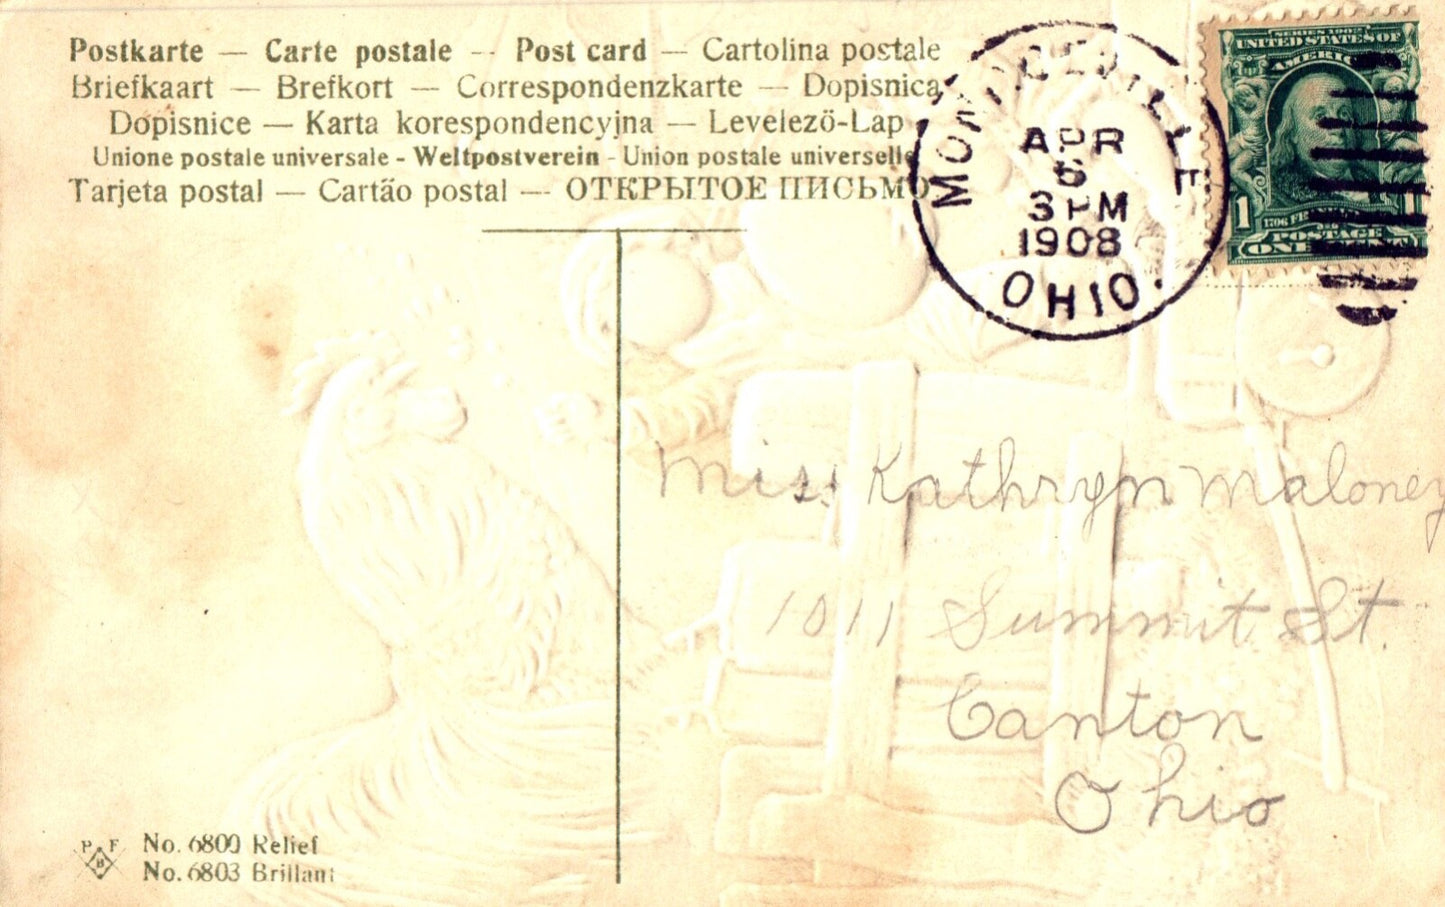 Postkarte — Carte postale -- Post card — Cartolina postale
Briefkaart — Brefkort — Correspondenzkarte — Dopisnica
Dopisnice — Karta korespondencyjna — Levelező-Lap
Unione postale universale - Weltpostverein - Union postale universelle
Tarjeta postal — Cartão postal — ОТКРЫТОЕ ПИСЬМО
MONROEVILLE
APR
6
3 PM
1908
OHIO.
SERIES OF
UNITED STATES OF
AMERICA
1 1
POSTAGE
ONE CENT
Miss Kathryn Maloney
1011 Summit St.
Canton
Ohio
P F
B
No. 6800 Relief
No. 6803 Brillant